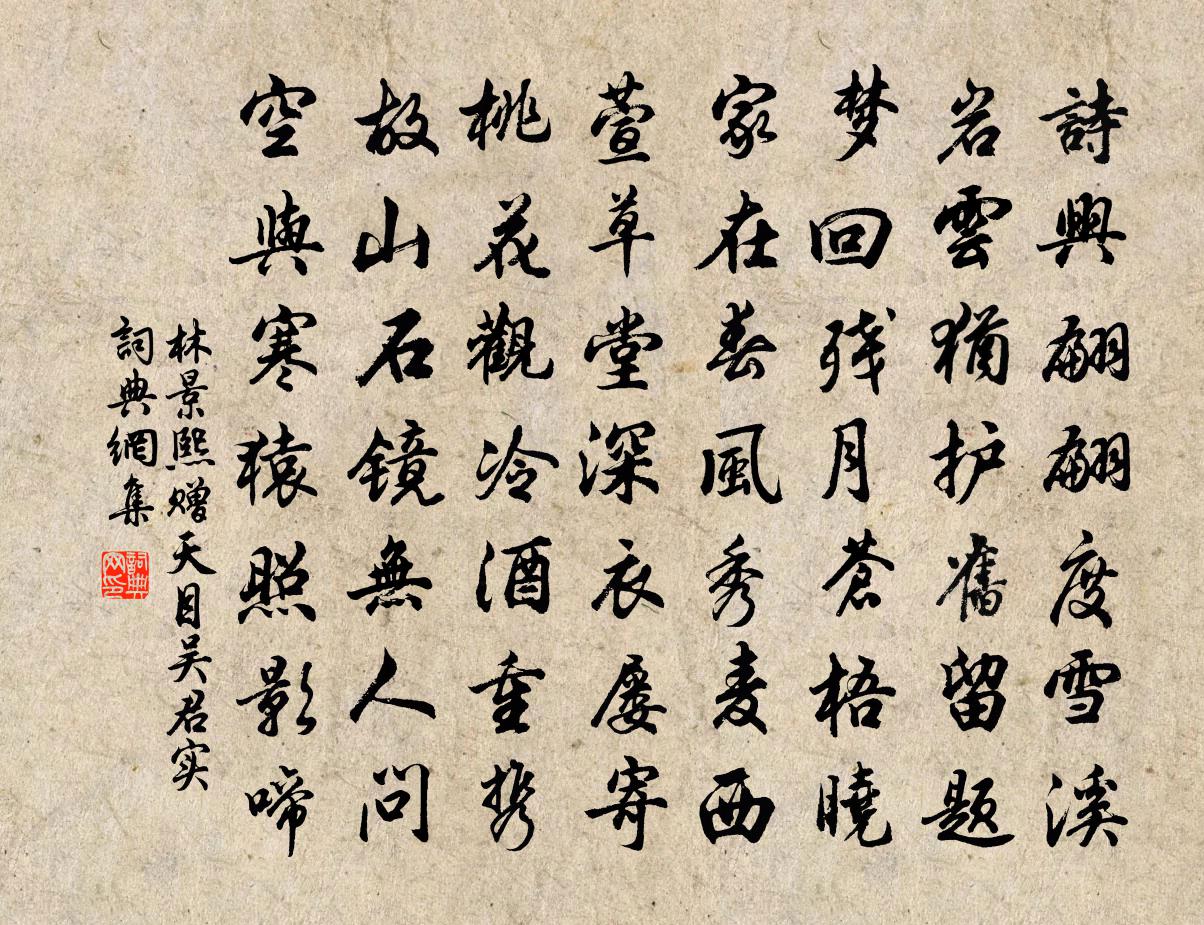 詩興翩翩度雪溪
岩雲猶护舊留題
梦回残月苍梧曉
家在春風秀麦西
萱草堂深衣屡寄
桃花觀冷酒重携
故山石镜無人問
空與寒猿照影啼
林景熙赠天目吴君实
詞典網集
詞典网印